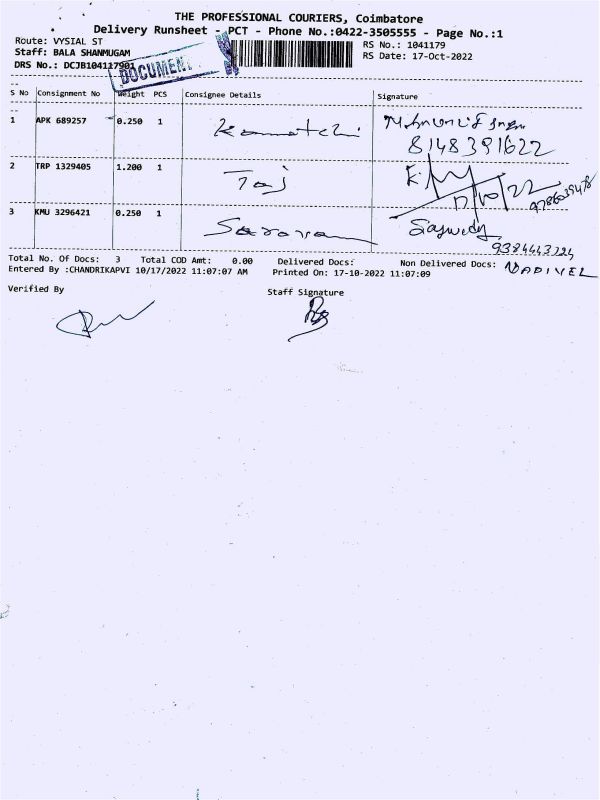 THE PROFESSIONAL COURIERS, Coimbatore
Delivery Runsheet - PCT - Phone No.:0422-3505555 - Page No.:1
Route: VYSIAL ST
RS No.: 1041179
Staff: BALA SHANMUGAM
RS Date: 17-Oct-2022
DRS No.: DCJB104117901
DOCUMENT
S No Consignment No Weight PCS Consignee Details Signature
1 APK 689257 0.250 1 Kamatchi
8148391622
2 TRP 1329405 1.200 1 Taj
17/10/22
3 KMU 3296421 0.250 1 Saravanan
Total No. Of Docs: 3 Total COD Amt: 0.00 Delivered Docs: Non Delivered Docs:
Entered By :CHANDRIKAPVI 10/17/2022 11:07:07 AM Printed On: 17-10-2022 11:07:09
Verified By
Staff Signature